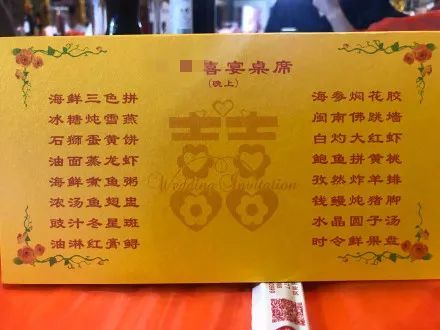 喜宴桌席
(晚上)
海鲜三色拼
冰糖炖雪燕
石狮蛋黄饼
油面蒸龙虾
海鲜煮鱼粥
浓汤鱼翅盅
豉汁冬星斑
油淋红膏蟳
海参焖花胶
闽南佛跳墙
白灼大红虾
鲍鱼拼黄桃
孜然炸羊排
钱鳗炖猪脚
水晶圆子汤
时令鲜果盘
囍
Wedding Invitation